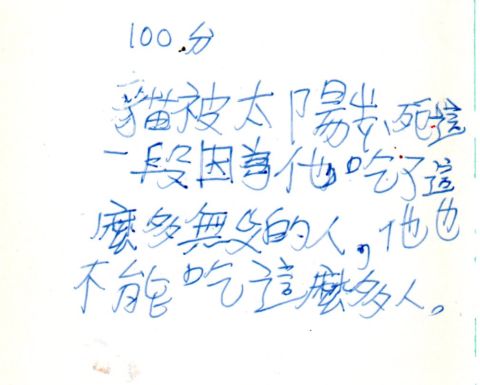 100分
貓被太陽晒死這
一段因為他吃了這
麼多無父的人,他也
不能吃這麼多人。